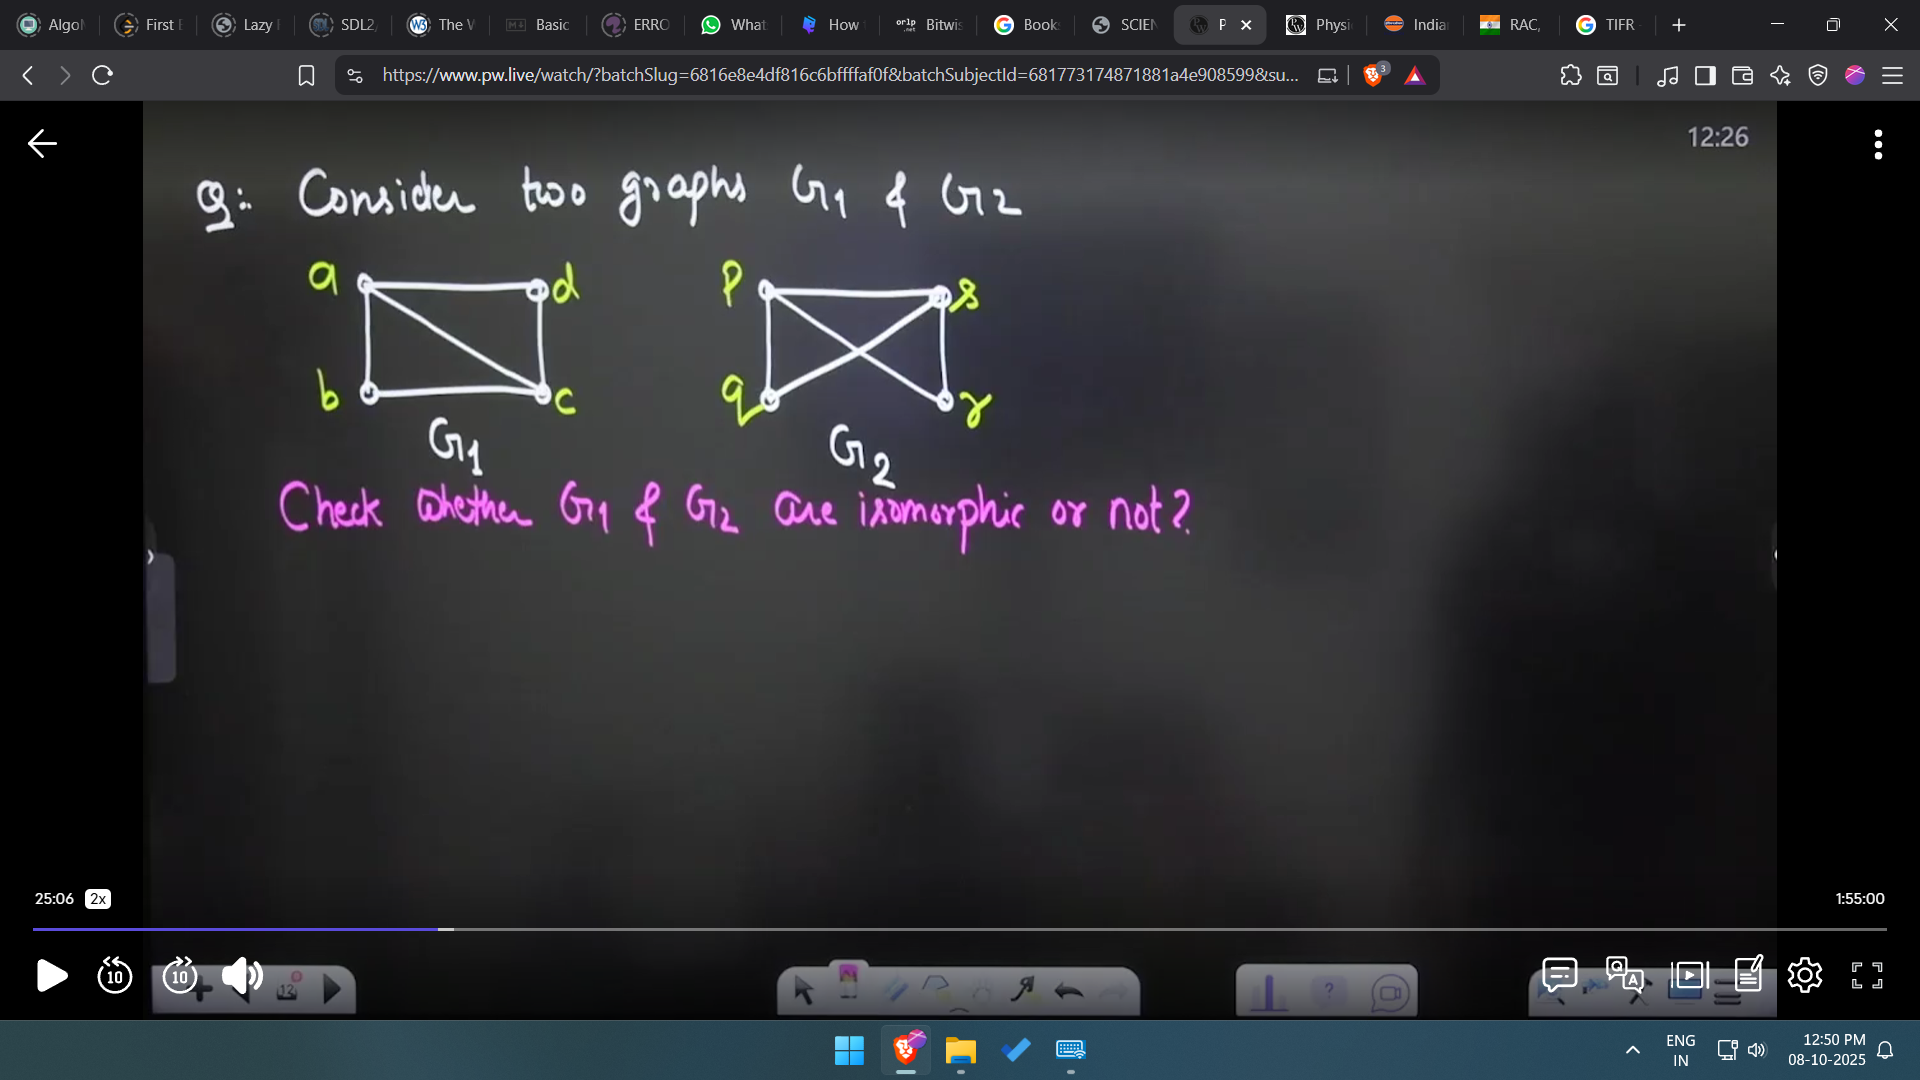 Algo First E Lazy SDL2, The V Basic ERRO What How Bitwi Book SCIEN P Physi India RAC, TIFR
https://www.pw.live/watch/?batchSlug=6816e8e4df816c6bffffaf0f&batchSubjectId=681773174871881a4e908599&su...
3
12:26
Q:- Consider two graphs G1 & G2
a d p s
b c q r
G1 G2
Check whether G1 & G2 are isomorphic or not?
25:06 2x 1:55:00
10 10 12
ENG 12:50 PM
IN 08-10-2025